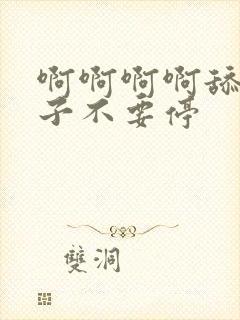 啊啊啊啊舔
子不要停
雙洞